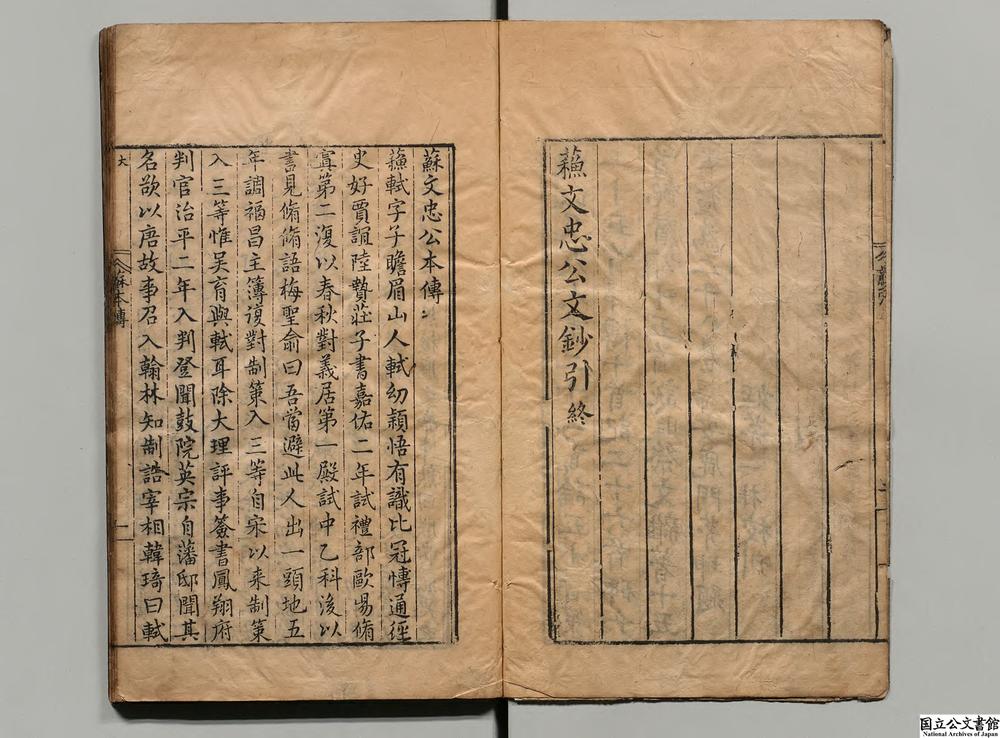 蘓文忠公文鈔引 終
蘇文忠公本傳
蘓軾字子瞻眉山人軾幼穎悟有識比冠愽通徑
史好賈誼陸贄莊子書嘉佑二年試禮部歐陽脩
寘第二復以春秋對義居第一殿試中乙科後以
書見脩脩語梅聖俞曰吾當避此人出一頭地五
年調福昌主簿復對制策入三等自宋以来制策
入三等惟吴育與軾耳除大理評事簽書鳳翔府
判官治平二年入判登聞鼓院英宗自藩邸聞其
名欲以唐故事召入翰林知制誥宰相韓琦曰軾
大
蘇本傳
一
国立公文書館
National Archives of Japan